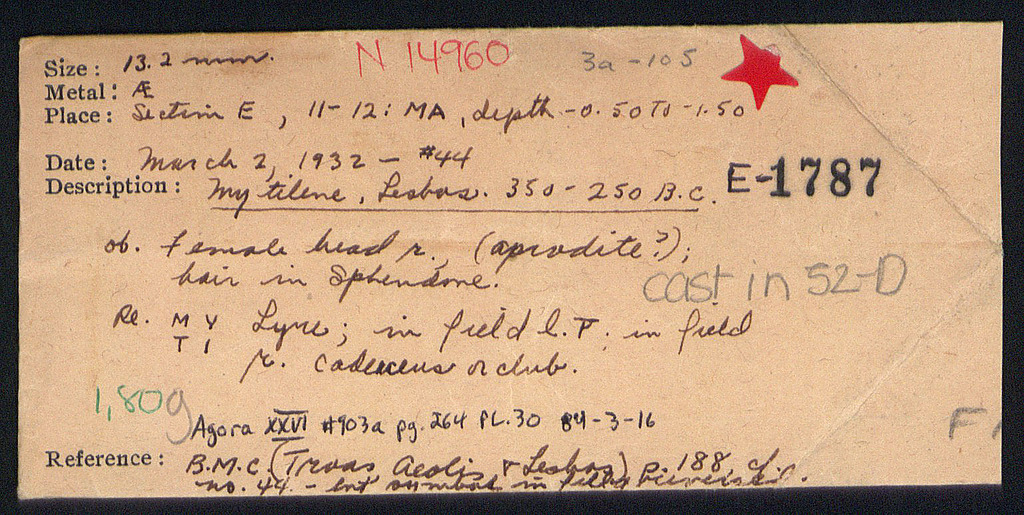 N 14960
3a-105
Size: 13.2 mm.
Metal: Æ
Place: Section E, 11-12: MA, depth -0.50 To -1.50
Date: March 2, 1932 - #44
Description: Mytilene, Lesbos. 350-250 B.C.
E-1787
ob. Female head r., (aprodite?);
hair in Sphendone.
cast in 52-D
Re. M Y Lyre; in field l. T. in field
T I
r. caduceus or club.
1,80g
Agora XXVI #903a pg. 264 PL.30 84-3-16
F
Reference: B.M.C. (Troas, Aeolis, & Lesbos) p. 188, cf.
no. 44 - but symbol in field